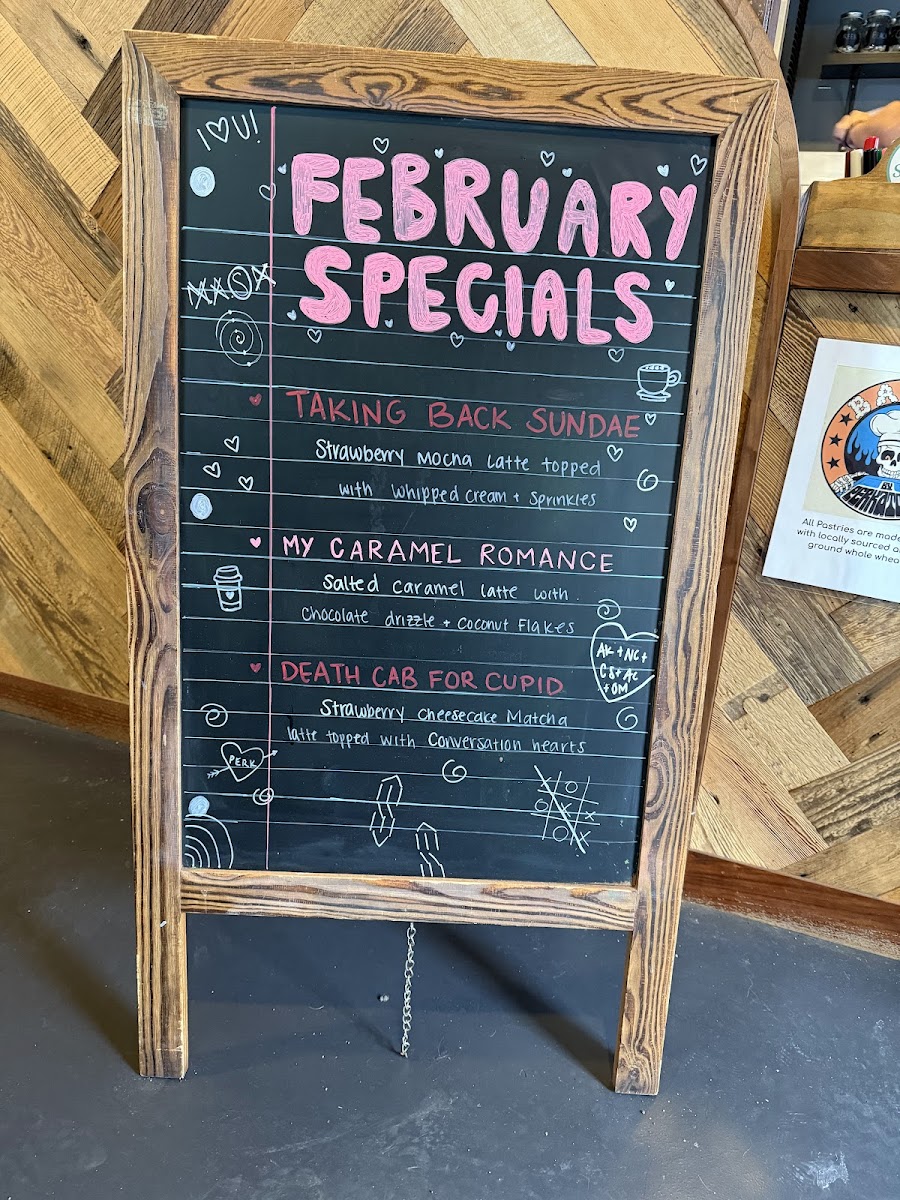 I ♡ U!
FEBRUARY
SPECIALS
TAKING BACK SUNDAE
Strawberry Mocha Latte topped
with whipped cream + sprinkles
MY CARAMEL ROMANCE
Salted caramel latte with
chocolate drizzle + coconut flakes
AK + NC +
CS + AC
+ OM
DEATH CAB FOR CUPID
Strawberry cheesecake Matcha
latte topped with conversation hearts
PERK
All Pastries are made
with locally sourced
ground whole whea